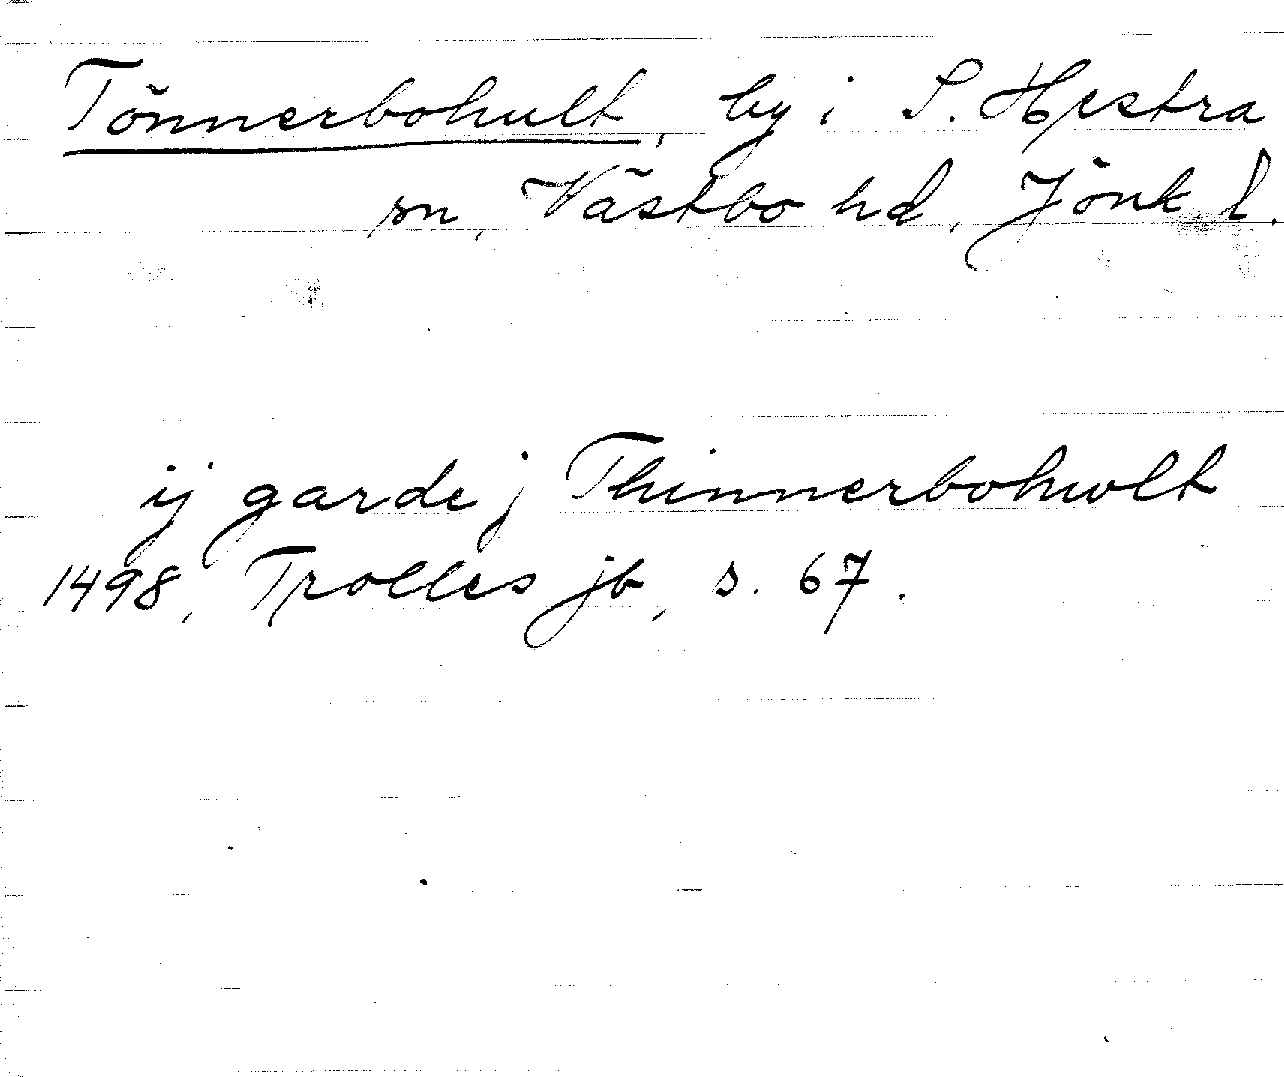 Tönnerbohult, by i S. Hestra
sn, Västbo hd, Jönk l.
ij garde j Thinnerbohwlt
1498, Trolles jb, s. 67.